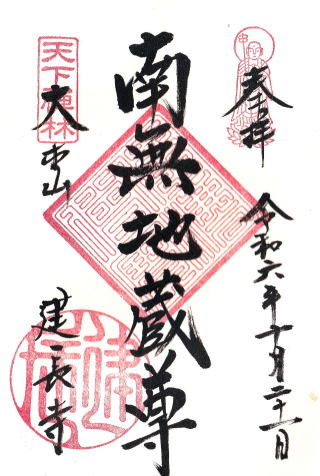 奉拝
令和六年十月二十一日
南無地蔵尊
天下禅林
大本山
建長寺